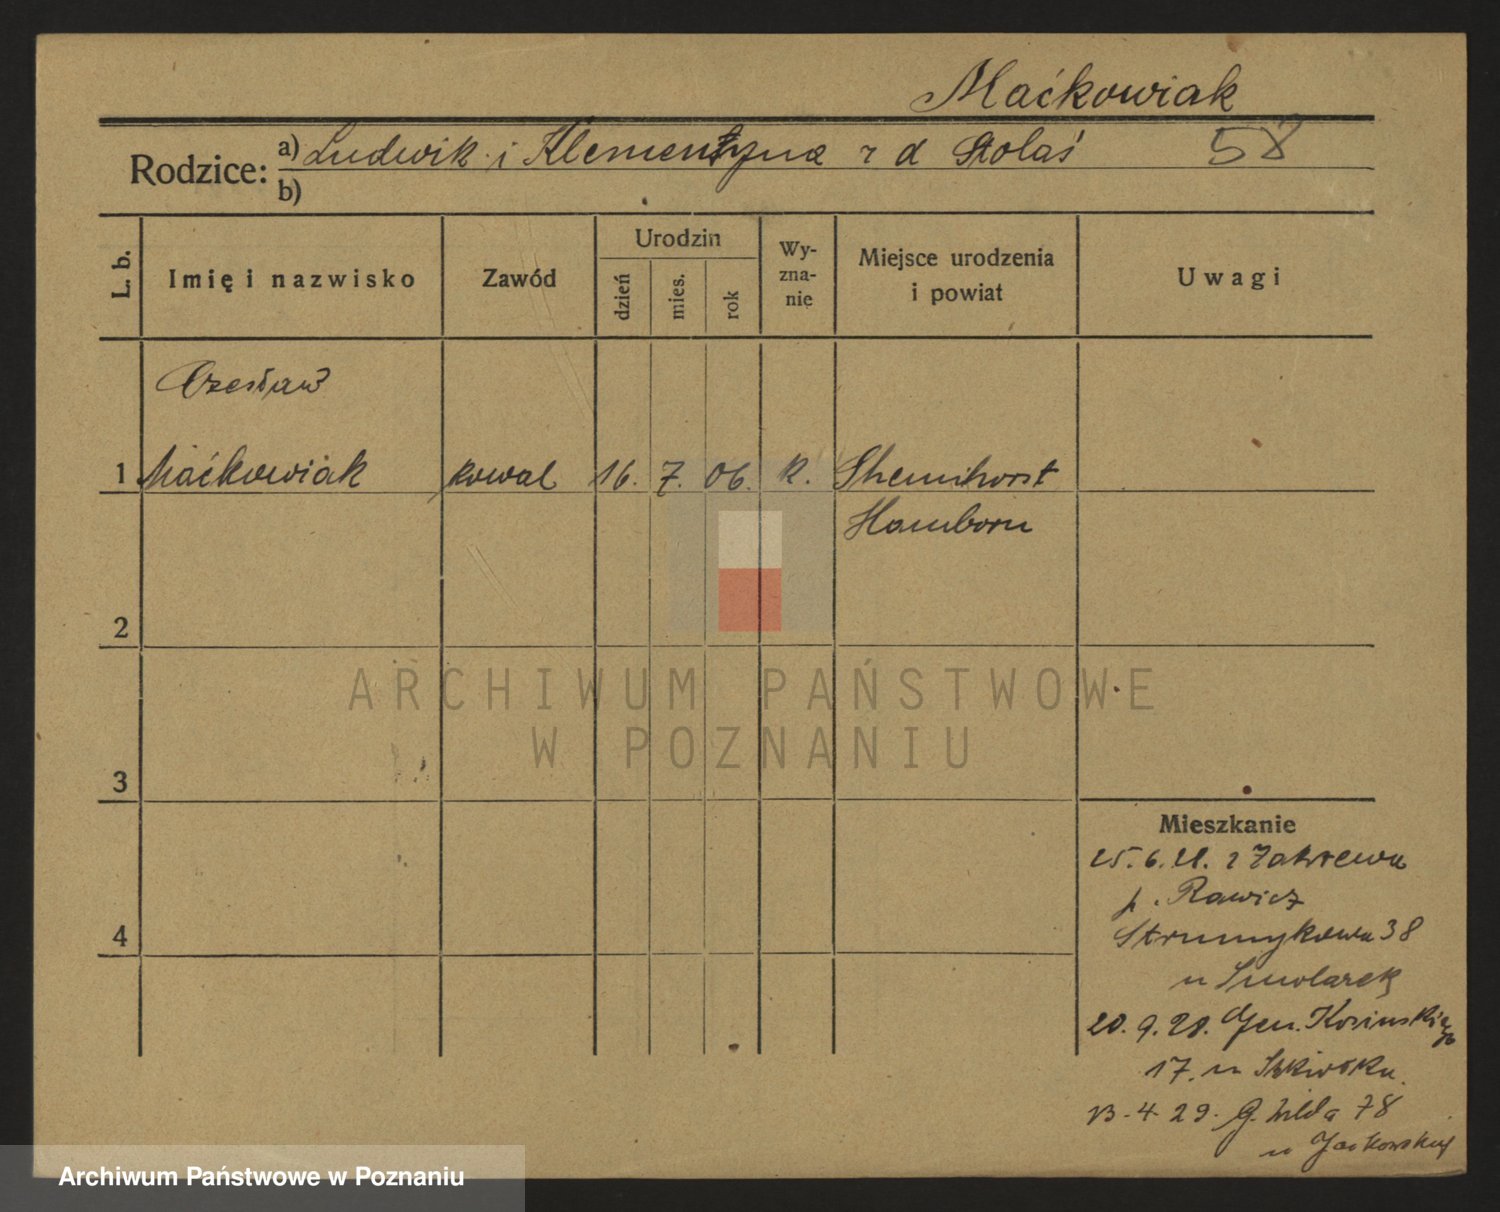 Maćkowiak
Rodzice: a) Ludwik i Klementyna z d Stolaś
58
b)
L. b.
Imię i nazwisko
Zawód
Urodzin
dzień
mies.
rok
Wy-
zna-
nie
Miejsce urodzenia
i powiat
Uwagi
Czesław
1 Maćkowiak kowal 16. 7. 06. k.
Hamborn
2
ARCHIWUM PAŃSTWOWE
W POZNANIU
3
Mieszkanie
25.6.28. z Zakrzewa
p. Rawicz
4
Strumykowa 38
u Smolarek
20.9.28. Gen. Kosińskiego
17. u
13-4-29. G. Wilda 78
u Jackowskiej
Archiwum Państwowe w Poznaniu